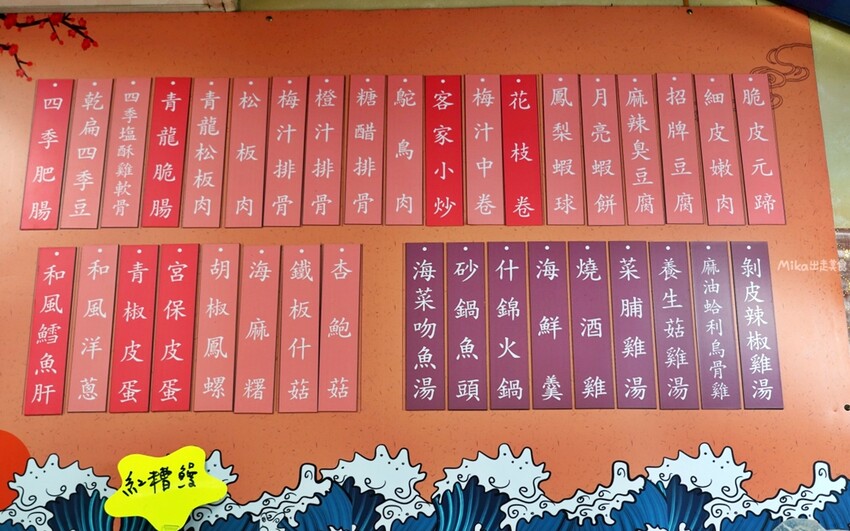 脆皮元蹄
細皮嫩肉
招牌豆腐
麻辣臭豆腐
月亮蝦餅
鳳梨蝦球
花枝卷
梅汁中卷
客家小炒
鴕鳥肉
糖醋排骨
橙汁排骨
梅汁排骨
松板肉
青龍松板肉
青龍脆腸
四季塩酥雞軟骨
乾扁四季豆
四季肥腸
剝皮辣椒雞湯
麻油蛤利烏骨雞
養生菇雞湯
菜脯雞湯
燒酒雞
海鮮羹
什錦火鍋
砂鍋魚頭
海菜吻魚湯
杏鮑菇
鐵板什菇
海麻糬
胡椒鳳螺
宮保皮蛋
青椒皮蛋
和風洋蔥
和風鱈魚肝
紅糟鰻
Mika出走美食